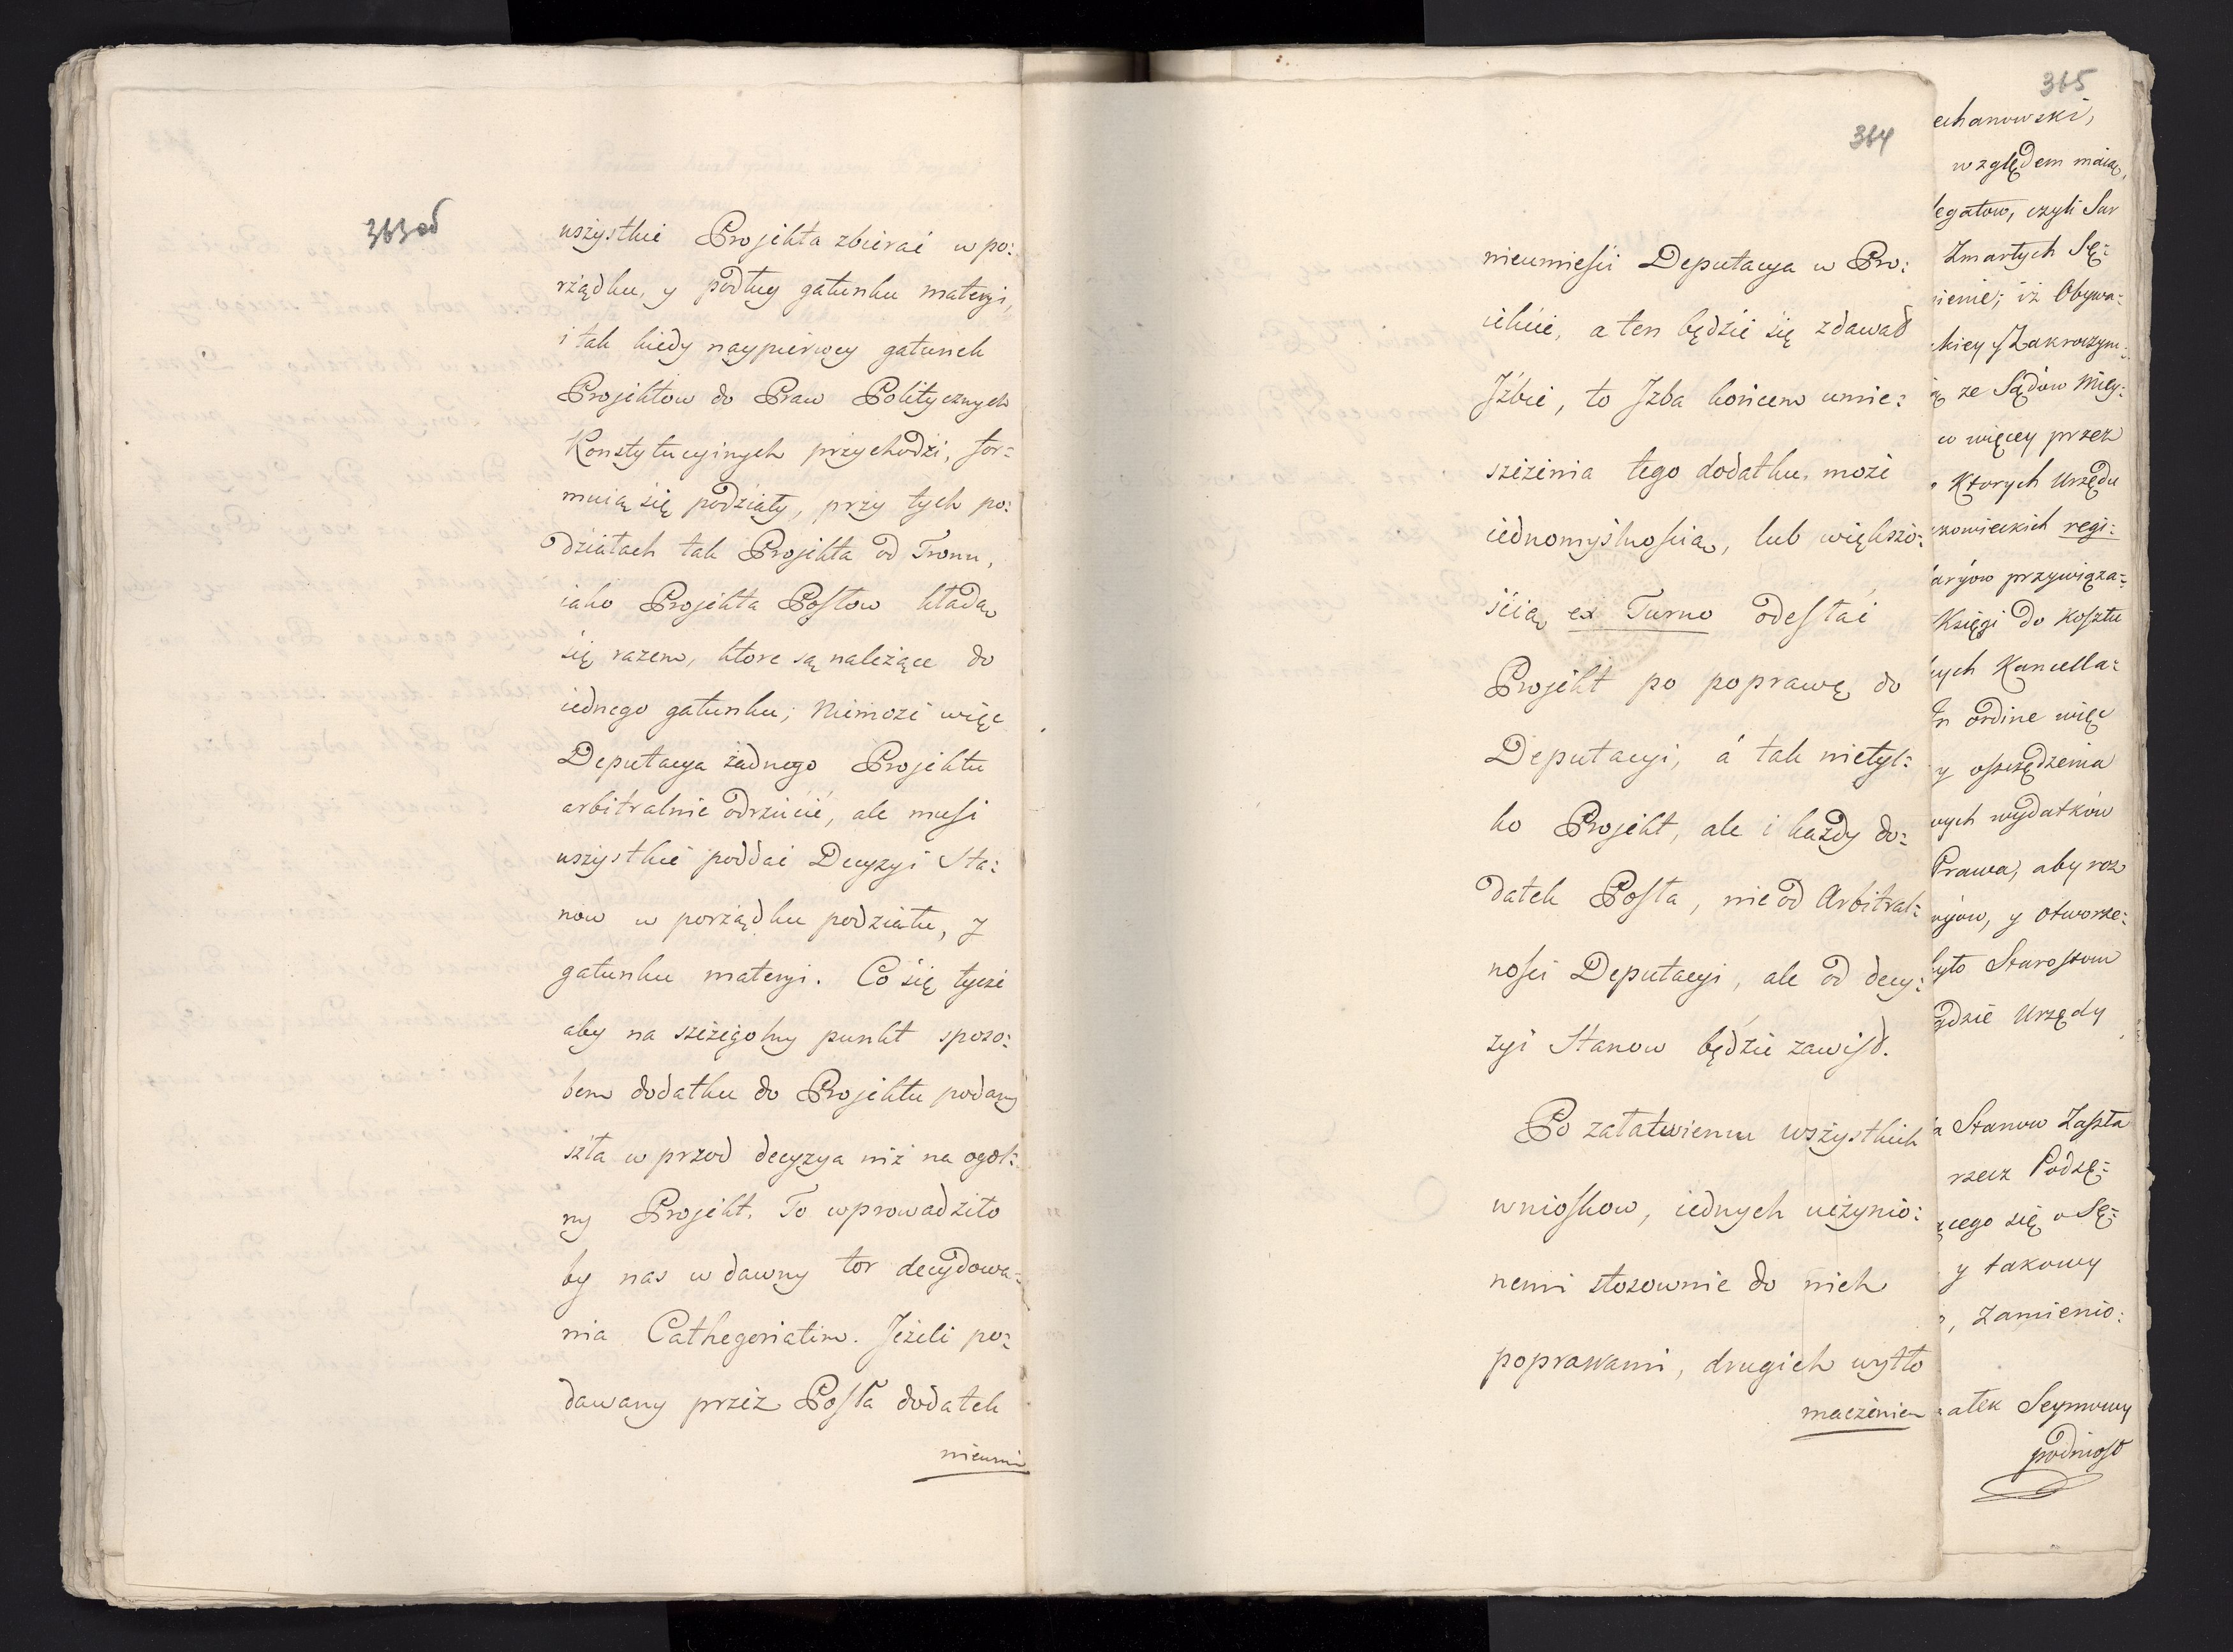 363 об
wszystkie Projekta zbierać w po:
rządku, y podług gatunku materyi,
i tak kiedy naypierwey gatunek
Projektow do Praw Politycznych
Konstytucyinych przychodzi, for=
muią się podziały, przy tych po:
działach tak Projekta od Tronu,
iako Projekta Posłow kładą
się razem, ktore są należące do
iednego gatunku; Niemoże więc
Deputacya żadnego Projektu
arbitralnie odrzucić, ale musi
wszystkie poddać Decyzyi Sta:
now w porządku podziału, y
gatunku materyi. Co się tycze
aby na szczegolny punkt sposo:
bem dodatku do Projektu podany
szła w przod decyzya niż na ogol:
ny Projekt. To wprowadziło
by nas w dawny tor decydowa=
nia Cathegoriatim. Jeżeli po:
dawany przez Posła dodatek
nieumie
364
nieumieści Deputacya w Pro:
iekcie, a ten będzie się zdawał
Jzbie, to Jzba końcem umie:
szczenia tego dodatku, może
iednomyślnością, lub większo:
ścią ex Turno odesłać
Projekt po poprawę do
Deputacyi, á tak nietyl:
ko Projekt, ale i każdy do:
datek Posła, nie od Arbitral:
ności Deputacyi, ale od decy:
zyi Stanow będzie zawisł.
Po załatwieniu wszystkich
wnioskow, iednych uczynio:
nemi stosownie do nich
poprawami, drugich wytło
maczenien
365
echanowski,
względem maią,
legatow, czyli Sur
Zmarłych Sę:
nienie; iż Obywa:
kiey y Zakroczym:
ze Sądow Miey:
w więcey przez
Ktorych Urzędu
zowieckich regi:
aryow przywiąza:
Księgi do Kosztu
ych Kancella:
In ordine więc
y oszczędzenia
wych wydatków
Prawa, aby roz
ryow, y otworze:
było Starostom
gdzie Urzędy
a Stanow Zaszła
rzecz Podsę:
ącego się o Sę:
y takowy
, Zamienio:
ałek Seymowy
podniosł